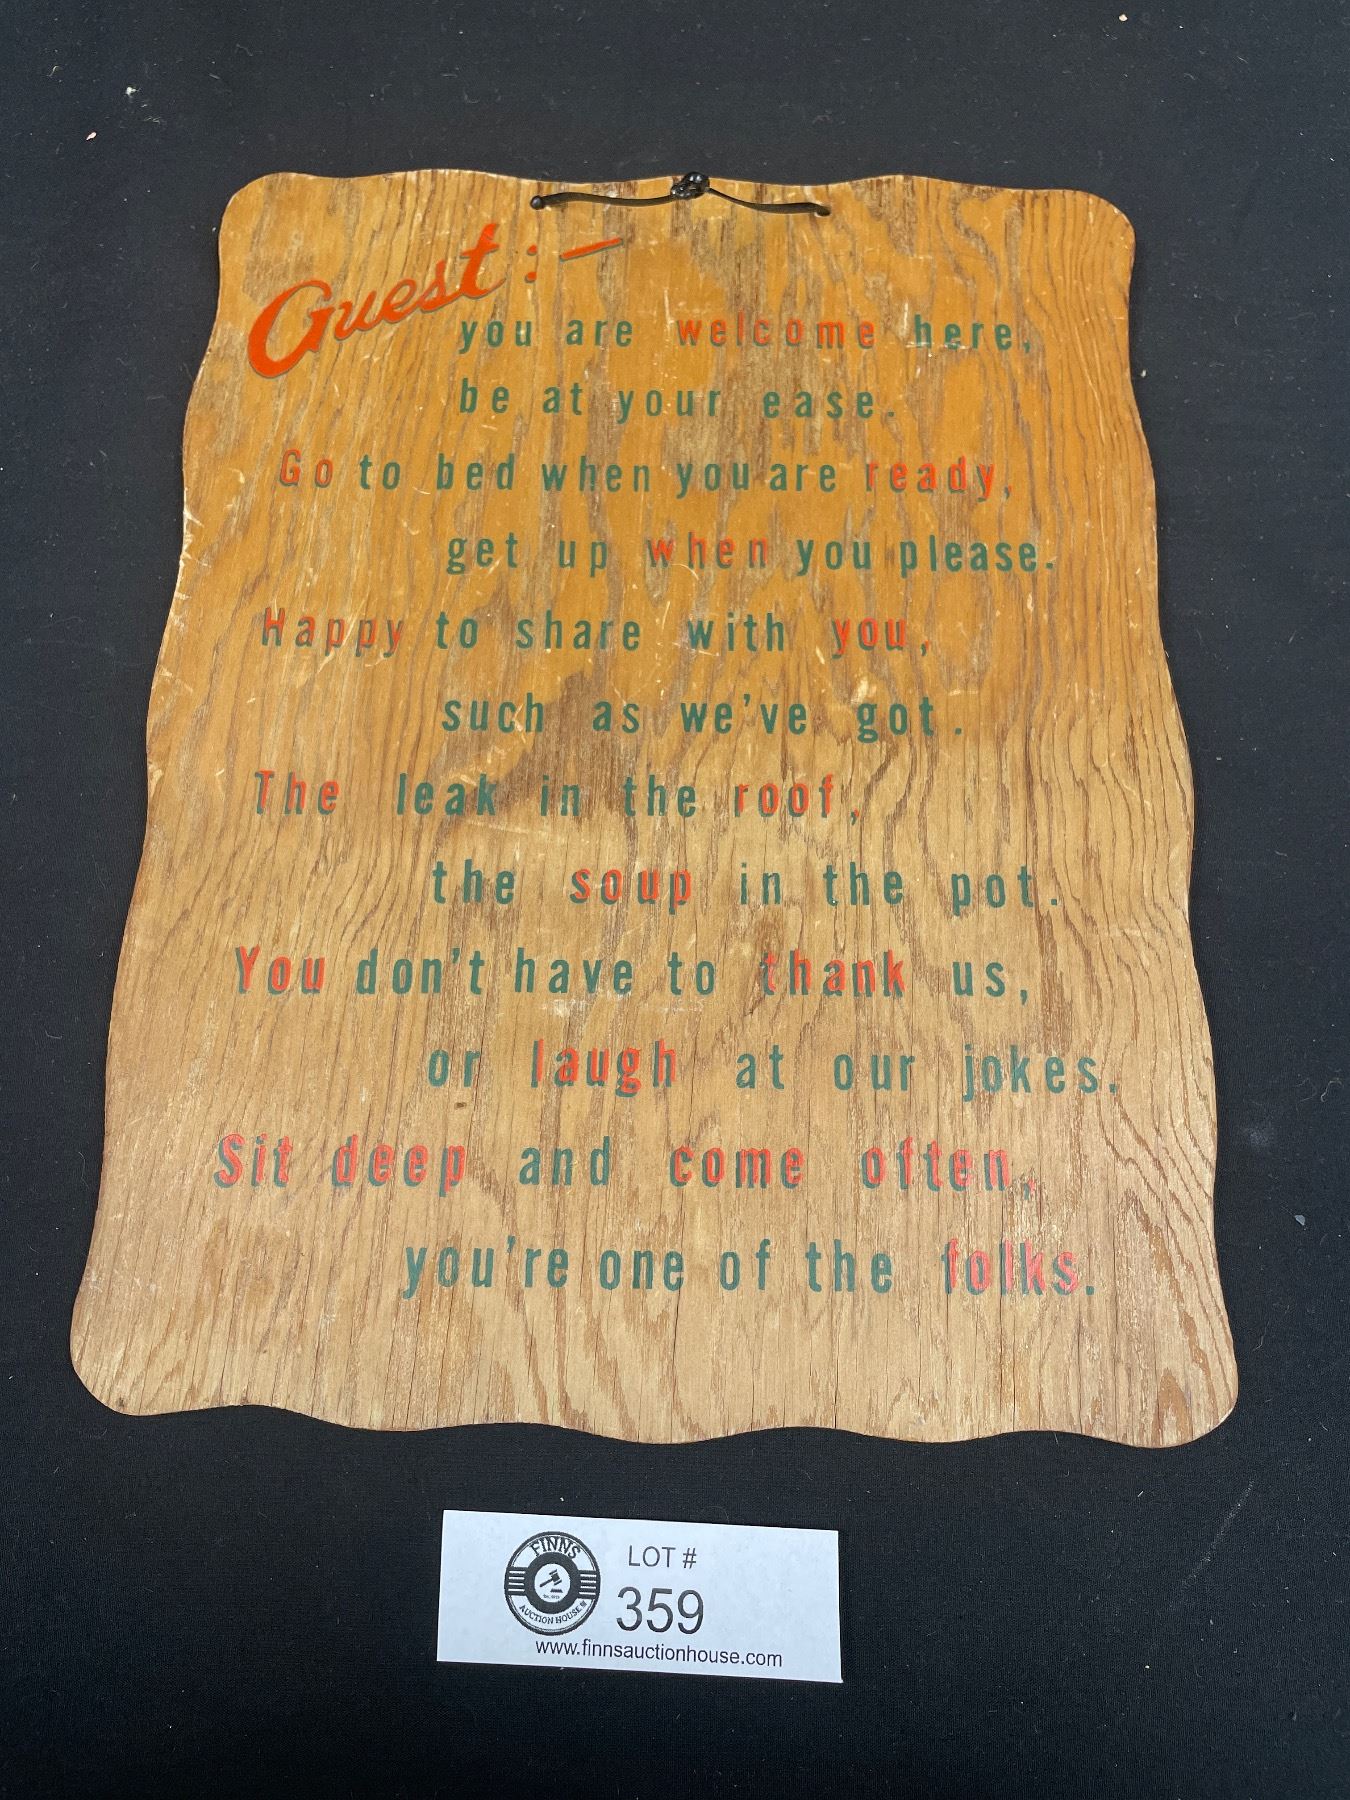 Guest:—
you are welcome here,
be at your ease.
Go to bed when you are ready,
get up when you please.
Happy to share with you,
such as we've got.
The leak in the roof,
the soup in the pot.
You don't have to thank us,
or laugh at our jokes.
Sit deep and come often,
you're one of the folks.
FINNS
AUCTION HOUSE
LOT #
359
www.finnsauctionhouse.com